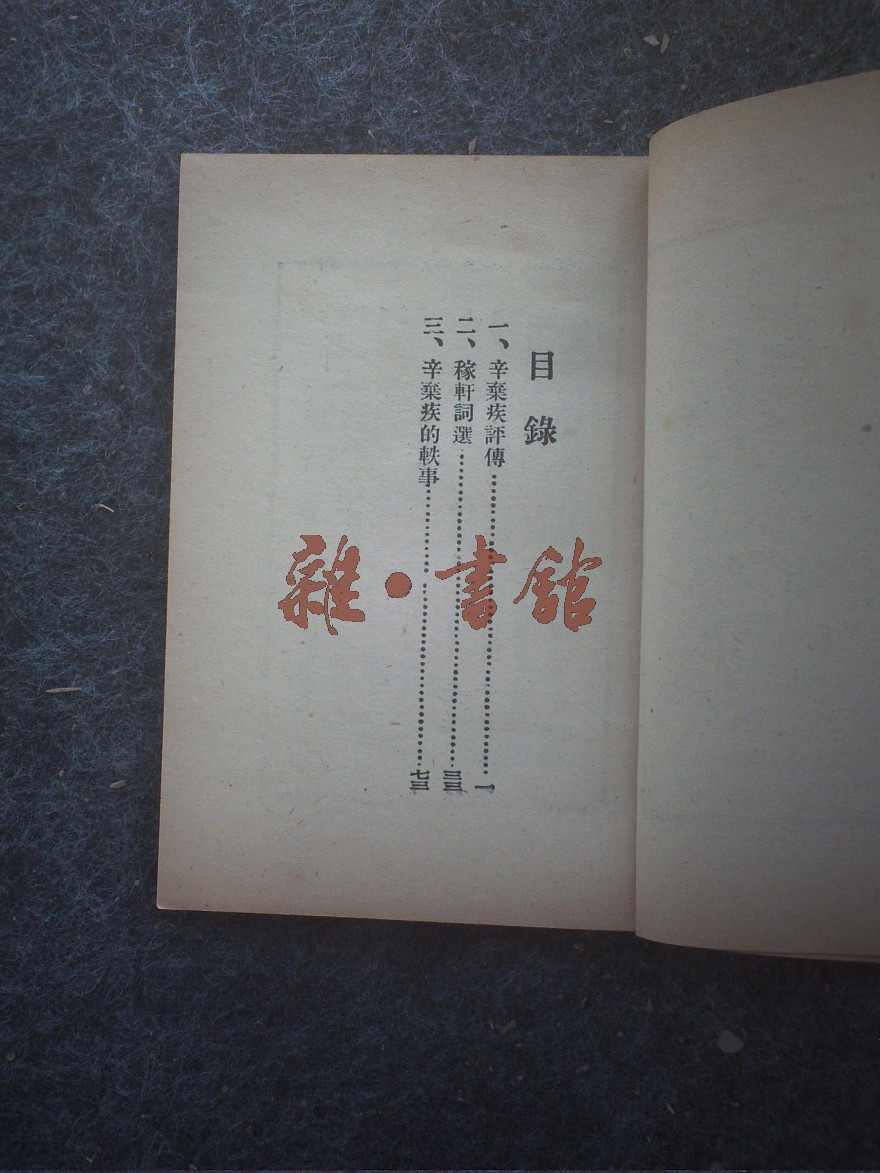 目錄
一、辛棄疾評傳……………………一
二、稼軒詞選……………………三三
三、辛棄疾的軼事……………………七三
雜・書館